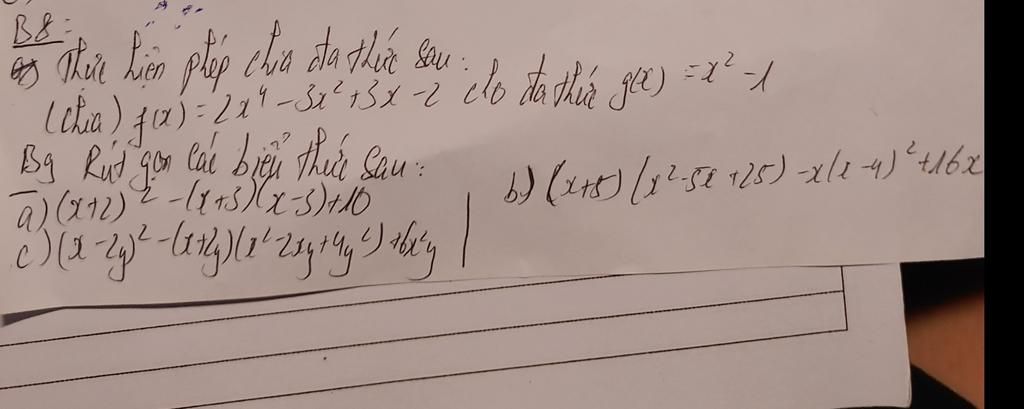 B8:
Thực hiện phép chia đa thức sau:
(chia) f(x) = 2x⁴ - 3x² + 3x - 2 cho đa thức g(x) = x² - 1
B9 Rút gọn các biểu thức sau:
a) (x+2)² - (x+3)(x-3) + 10
b) (x+5)(x² - 5x + 25) - x(x-4)² + 16x
c) (x - 2y)² - (x+2y)(x² - 2xy + 4y²) + 6x²y